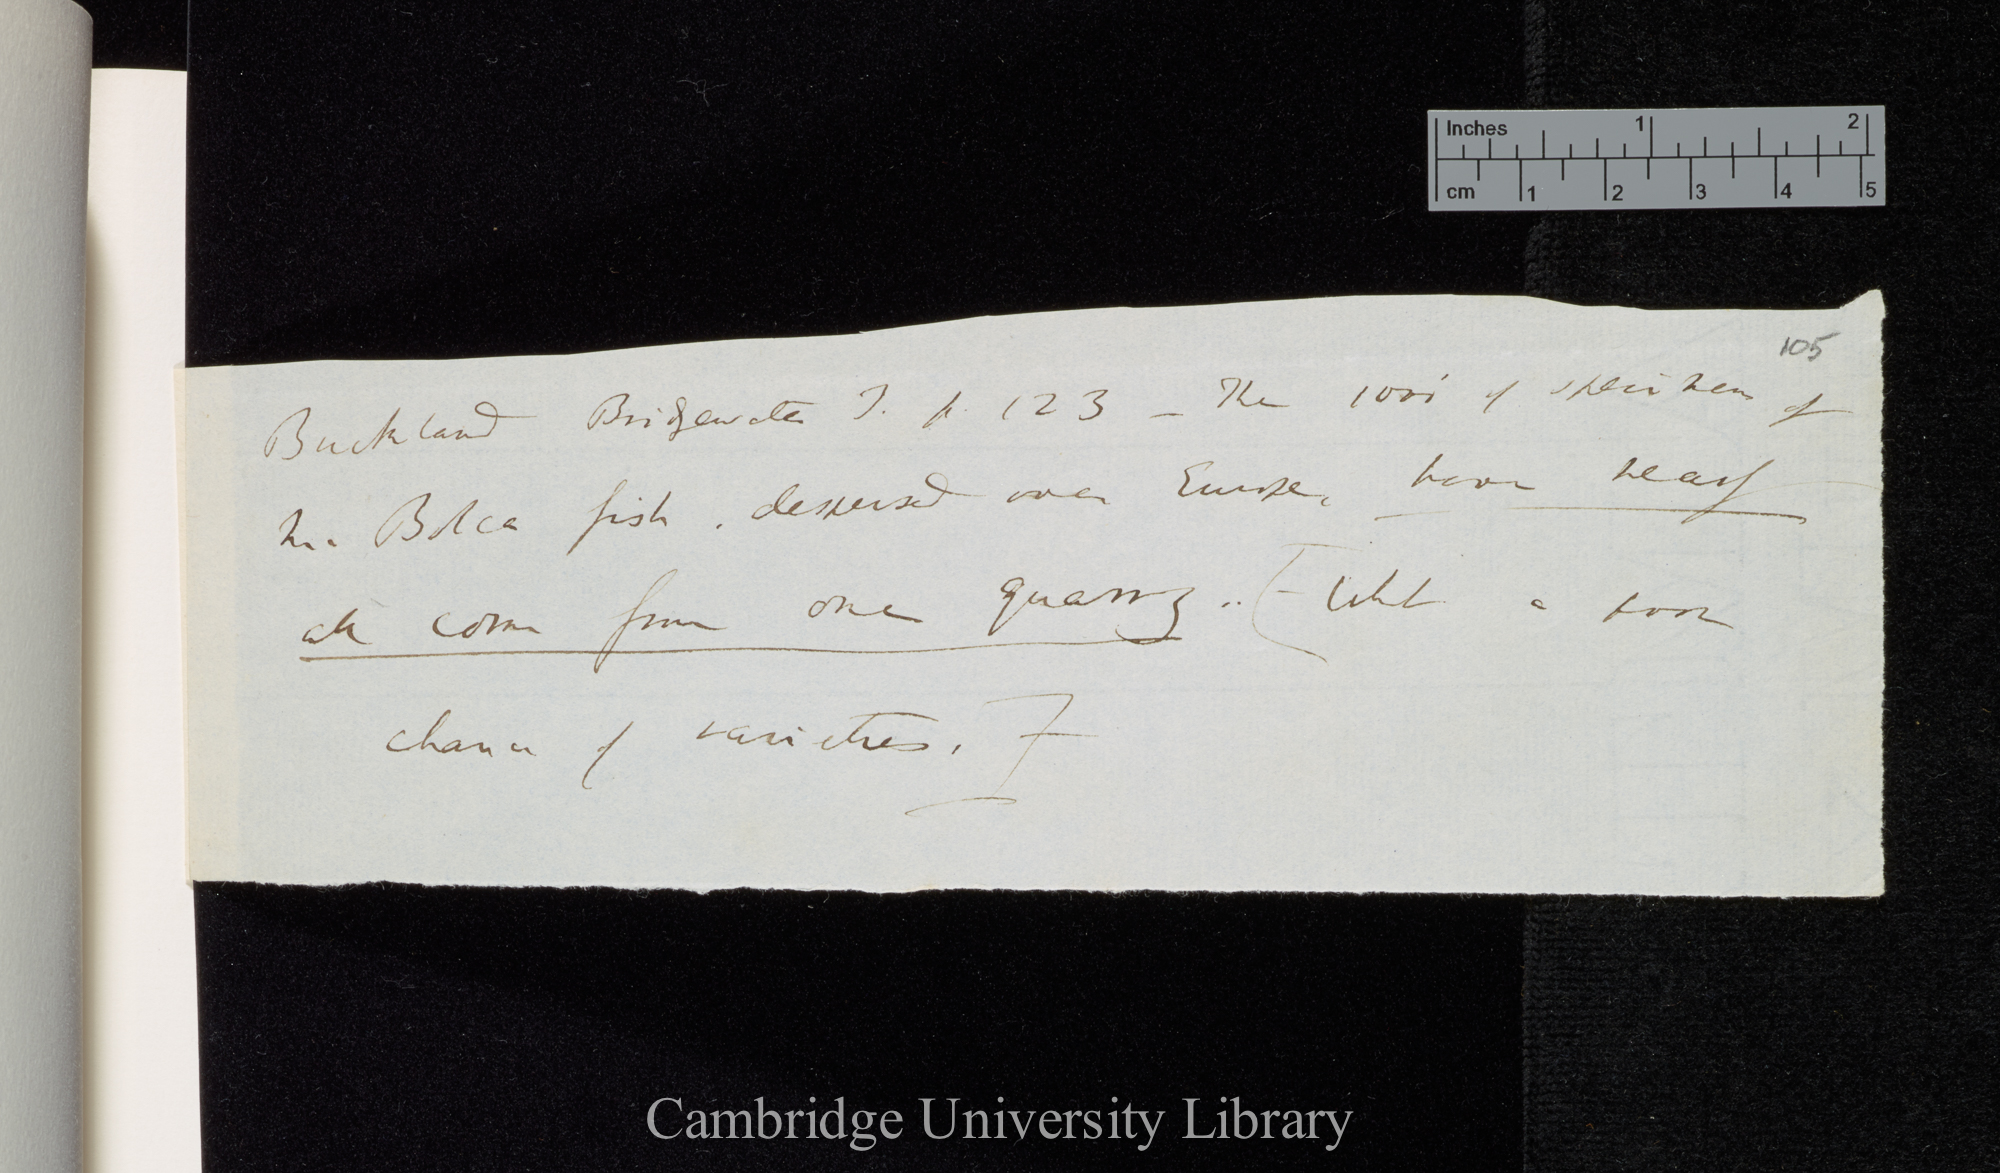 Inches 1 2
cm 1 2 3 4 5
105
Buckland Bridgewater T. p. 123 — The 100s of specimens of
the Bolca fish, dispersed over Europe, have nearly
all come from one quarry.. [What a poor
chance of varieties.]
Cambridge University Library